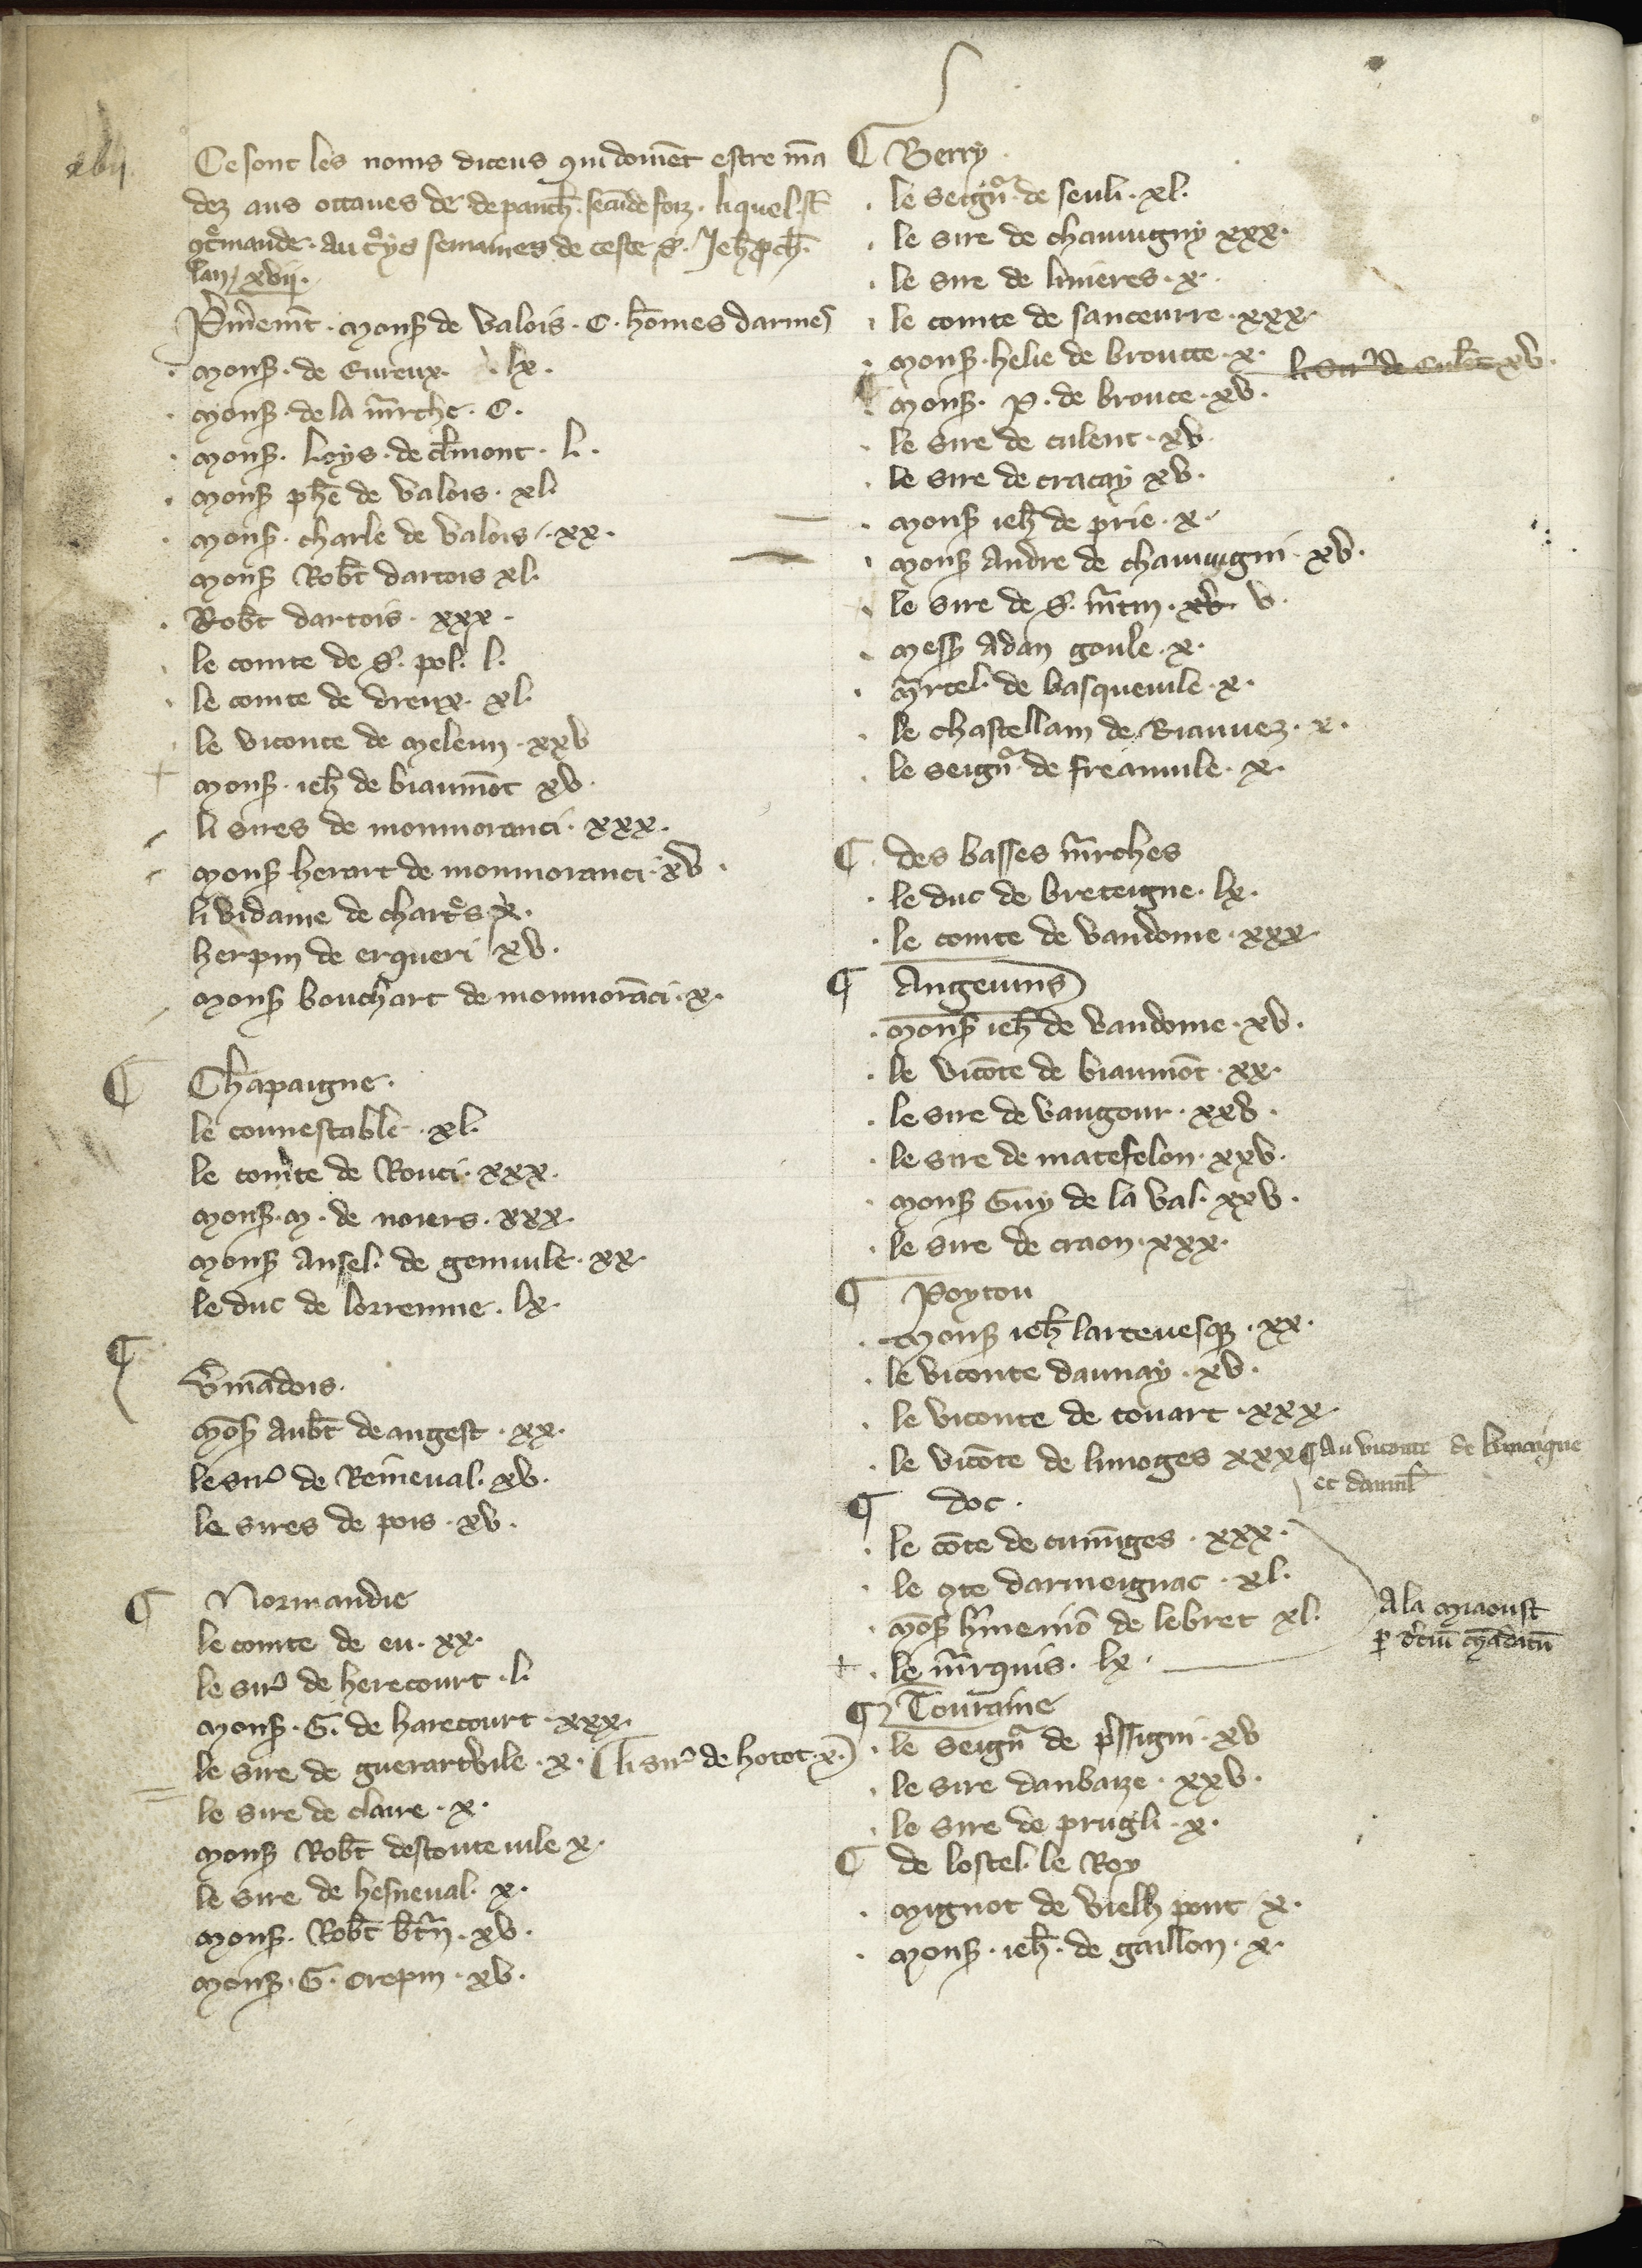 xvii
Ce sont les noms diceus qui doivēt estre mā
dez aus octaves de depanth. secūde foiz. liquel st̄
9t̄mande. Au troys semaines de ceste S. Jeh̄ pch̄.
lan xvii.
Pm̄emt̄. Mons̄ de Valois. C. hōmes darmes
Mons̄. de Evreux. lx.
Mons̄. de la m̄rche. C.
Mons̄. Loys. de cl̄mont. L.
Mons̄ ph̄e de Valois. xl.
Mons̄. charle de Valois. xx.
Mons̄ Rob̄t dartois xl.
Rob̄t dartois. xxx.
le comte de S. pol. l.
le comte de dreux. xl.
le viconte de Meleun. xxv
Mons̄. ieh̄ de biaumōt xv.
li sires de monmoranci. xxx.
Mons̄ herart de monmoranci. xv.
li vidame de chartrs x.
herpin de erqueri xv.
Mons̄ bouchart de monmorāci. x.
¶ Chapaigne.
le connestable. xl.
le comte de Rouci. xxx.
Mons̄. M. de noiers. xxx.
Mons̄ Ansel. de genvile. xx.
le duc de lorrenne. lx.
¶ V̄mādois.
Mōs̄ Aub̄t de angest. xx.
le sire de Reineval. xv.
le sires de pois. xv.
¶ Normandie
le comte de eu. xx.
le sire de herecourt. l.
Mons̄. G. de harecourt. xxx.
le sire de guerartvile. x. (li sire de hotot. x.)
le sire de claire. x.
Mons̄ Rob̄t destoutevile x.
le sire de hesneval. x.
Mons̄. Rob̄t b̄tn̄. xv.
Mons̄. G. crepin. xv.
¶ Berry.
le seign̄r de seuli. xl.
le sire de chauvigny xxx.
le sire de linieres. x.
le comte de sanceurre. xxx.
Mons̄. helie de broucce. x. li sire de Cul̄t xv.
Mons̄. P. de broucce. xv.
le sire de culent. xv.
le sire de cracay xv.
Mons̄ ieh̄ de prie. x.
Mons̄ Andre de chauvigni. xv.
le sire de S. m̄tin. xv. v.
Mess̄ Adan goule. x.
m̄rtel. de basquevile. x.
le chastellain de Biauvez. x.
le seign̄r de freauvile. x.
¶ des basses m̄rches
le duc de breteigne. lx.
le comte de vandome. xxx.
¶ Angevins
Mons̄ ieh̄ de vandome. xv.
le vicōte de biaumōt. xx.
le sire de vaugour. xxv.
le sire de matefelon. xxv.
Mons̄ Guy de la val. xxv.
le sire de craon. xxx.
¶ Poytou
Mons̄ ieh̄ lartevesq̄. xx.
le viconte daunay. xv.
le viconte de touart. xxx.
le vicōte de limoges xxx ¶ Au viconte de limaigne
et dauvil̄
¶ doc.
le cōte de cum̄iges. xxx.
le 9te darmeignac. xl.
Mōs̄ h̄mēiō de lebret xl.
le m̄rquis. lx.
A la miaoust
p̄ t̄ciū mādatū
¶ Touraine
le seign̄r de p̄ssigni. xv
le sire danbaize. xxv.
le sire de prugli. x.
¶ de lostel. le Roy
Mignot de vielh pont x.
Mons̄. ieh̄. de gaillon. x.